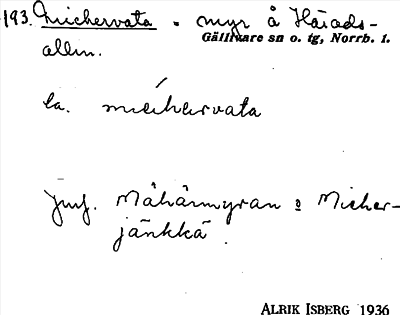 193. Michervata. myr å Härads-
Gällivare sn o. tg, Norrb. l.
allm.
la. michervata
Jmf. Måhärmyran o Micher-
jänkkä.
ALRIK ISBERG 1936